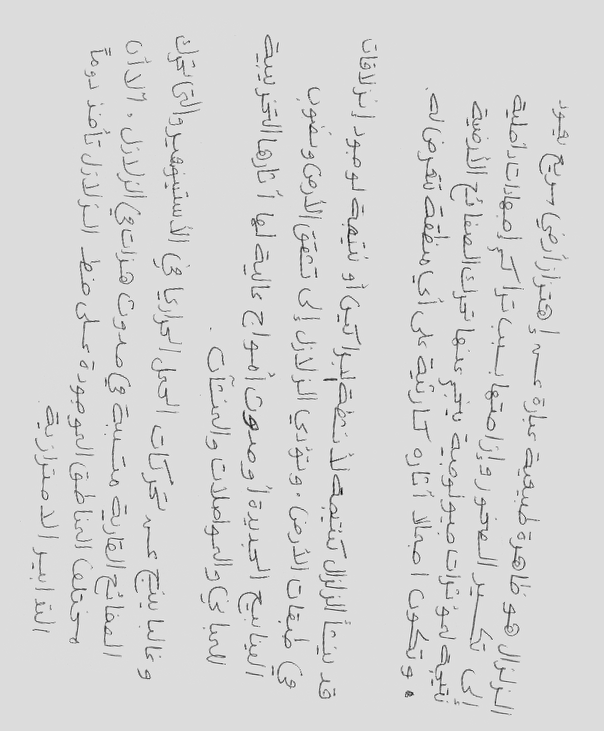 الزلزال هو ظاهرة طبيعية عبارة عن إهتزاز أرضي سريع يعود
إلى تكسير الصخور وإزاحتها بسبب تراكم إجهادات داخلية
نتيجة لمؤثرات جيولوجية ينجم عنها تحرك الصفائح الأرضية
وتكون اجمالا آثاره كارثية على أي منطقة تتعرض له.
قد ينشأ الزلزال كنتيجة لأنشطة البراكين أو نتيجة لوجود إنزلاقات
في طبقات الأرض. وتؤدي الزلازل إلى تشقق الأرض ونضوب
الينابيع الجديدة أو حدوث أمواج عالية لها آثارها التخريبية
للمباني والمواصلات والمنشآت.
وغالبا ينتج عن تحركات الحمل الحراري في الأستينوسفير والتي تحرك
الصفائح القارية متسببة في حدوث هزات هي الزلازل. الا أن
مختلف المناطق الموجودة على خط الزلازل تأخذ دوماً
التدابير الاحترازية